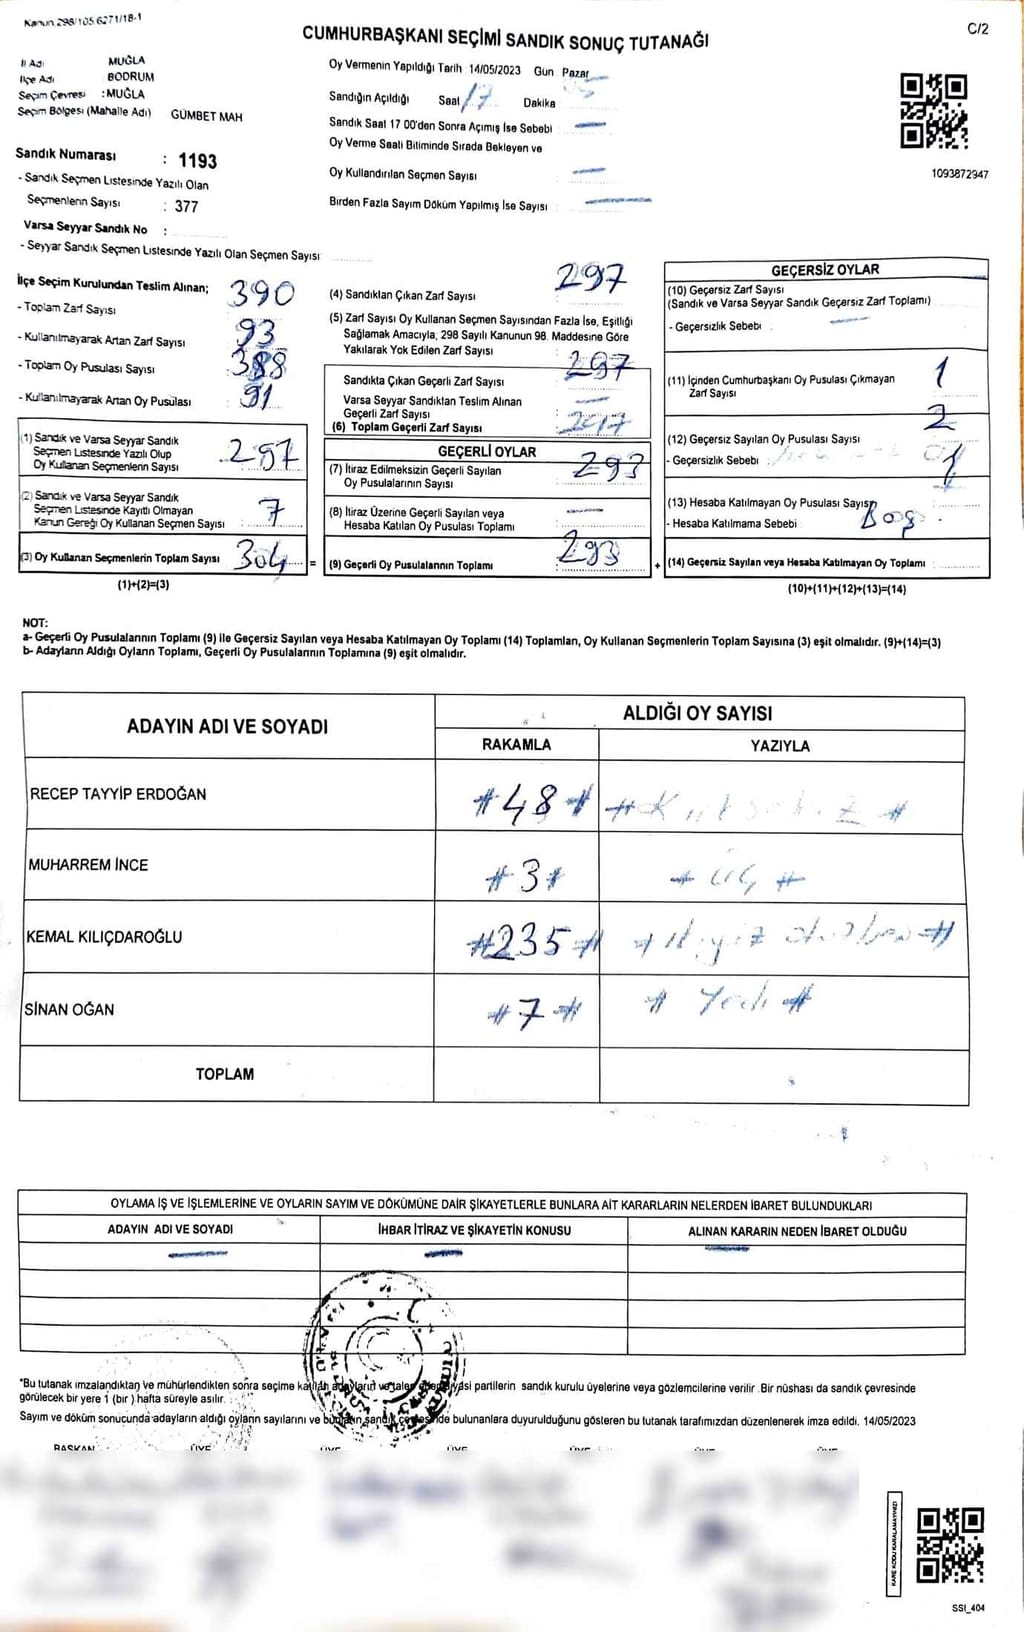 Kanun.298/105.6271/18-1
C/2
CUMHURBAŞKANI SEÇİMİ SANDIK SONUÇ TUTANAĞI
İl Adı MUĞLA
İlçe Adı BODRUM
Seçim Çevresi :MUĞLA
Seçim Bölgesi (Mahalle Adı) GÜMBET MAH
Oy Vermenin Yapıldığı Tarih 14/05/2023 Gün Pazar
Sandığın Açıldığı Saat 17 Dakika 05
Sandık Saat 17 00'den Sonra Açımış İse Sebebi
Oy Verme Saati Bitiminde Sırada Bekleyen ve
Oy Kullandırılan Seçmen Sayısı
Birden Fazla Sayım Döküm Yapılmış İse Sayısı
1093872947
Sandık Numarası : 1193
- Sandık Seçmen Listesinde Yazılı Olan
Seçmenlerin Sayısı : 377
Varsa Seyyar Sandık No :
- Seyyar Sandık Seçmen Listesinde Yazılı Olan Seçmen Sayısı
İlçe Seçim Kurulundan Teslim Alınan;
- Toplam Zarf Sayısı 390
- Kullanılmayarak Artan Zarf Sayısı 93
- Toplam Oy Pusulası Sayısı 388
- Kullanılmayarak Artan Oy Pusulası 91
(1) Sandık ve Varsa Seyyar Sandık
Seçmen Listesinde Yazılı Olup
Oy Kullanan Seçmenlerin Sayısı 297
(2) Sandık ve Varsa Seyyar Sandık
Seçmen Listesinde Kayıtlı Olmayan
Kanun Gereği Oy Kullanan Seçmen Sayısı 7
(3) Oy Kullanan Seçmenlerin Toplam Sayısı 304 =
(1)+(2)=(3)
(4) Sandıktan Çıkan Zarf Sayısı 297
(5) Zarf Sayısı Oy Kullanan Seçmen Sayısından Fazla İse, Eşitliği
Sağlamak Amacıyla, 298 Sayılı Kanunun 98. Maddesine Göre
Yakılarak Yok Edilen Zarf Sayısı :
Sandıkta Çıkan Geçerli Zarf Sayısı 297
Varsa Seyyar Sandıktan Teslim Alınan
Geçerli Zarf Sayısı
(6) Toplam Geçerli Zarf Sayısı
GEÇERLİ OYLAR
(7) İtiraz Edilmeksizin Geçerli Sayılan
Oy Pusulalarının Sayısı 293
(8) İtiraz Üzerine Geçerli Sayılan veya
Hesaba Katılan Oy Pusulası Toplamı
(9) Geçerli Oy Pusulalarının Toplamı 293 +
GEÇERSİZ OYLAR
(10) Geçersiz Zarf Sayısı
(Sandık ve Varsa Seyyar Sandık Geçersiz Zarf Toplamı)
- Geçersizlik Sebebi
(11) İçinden Cumhurbaşkanı Oy Pusulası Çıkmayan
Zarf Sayısı 1
(12) Geçersiz Sayılan Oy Pusulası Sayısı 2
- Geçersizlik Sebebi :
(13) Hesaba Katılmayan Oy Pusulası Sayısı
- Hesaba Katılmama Sebebi Boş
(14) Geçersiz Sayılan veya Hesaba Katılmayan Oy Toplamı :
(10)+(11)+(12)+(13)=(14)
NOT:
a- Geçerli Oy Pusulalarının Toplamı (9) ile Geçersiz Sayılan veya Hesaba Katılmayan Oy Toplamı (14) Toplamları, Oy Kullanan Seçmenlerin Toplam Sayısına (3) eşit olmalıdır. (9)+(14)=(3)
b- Adayların Aldığı Oyların Toplamı, Geçerli Oy Pusulalarının Toplamına (9) eşit olmalıdır.
ADAYIN ADI VE SOYADI
ALDIĞI OY SAYISI
RAKAMLA YAZIYLA
RECEP TAYYİP ERDOĞAN #48# #Kırksekiz#
MUHARREM İNCE #3# # Üç #
KEMAL KILIÇDAROĞLU #235# # İkiyüz otuzbeş #
SİNAN OĞAN #7# # Yedi #
TOPLAM
OYLAMA İŞ VE İŞLEMLERİNE VE OYLARIN SAYIM VE DÖKÜMÜNE DAİR ŞİKAYETLERLE BUNLARA AİT KARARLARIN NELERDEN İBARET BULUNDUKLARI
ADAYIN ADI VE SOYADI İHBAR İTİRAZ VE ŞİKAYETİN KONUSU ALINAN KARARIN NEDEN İBARET OLDUĞU
*Bu tutanak imzalandıktan ve mühürlendikten sonra seçime katılan adayların ve talep eden siyasi partilerin sandık kurulu üyelerine veya gözlemcilerine verilir. Bir nüshası da sandık çevresinde
görülecek bir yere 1 (bir ) hafta süreyle asılır.
Sayım ve döküm sonucunda adayların aldığı oyların sayılarını ve bunların sandık çevresinde bulunanlara duyurulduğunu gösteren bu tutanak tarafımızdan düzenlenerek imza edildi. 14/05/2023
BAŞKAN ÜYE ÜYE ÜYE ÜYE ÜYE ÜYE
KARE KODU KARALAMAYINIZ!
SSI_404